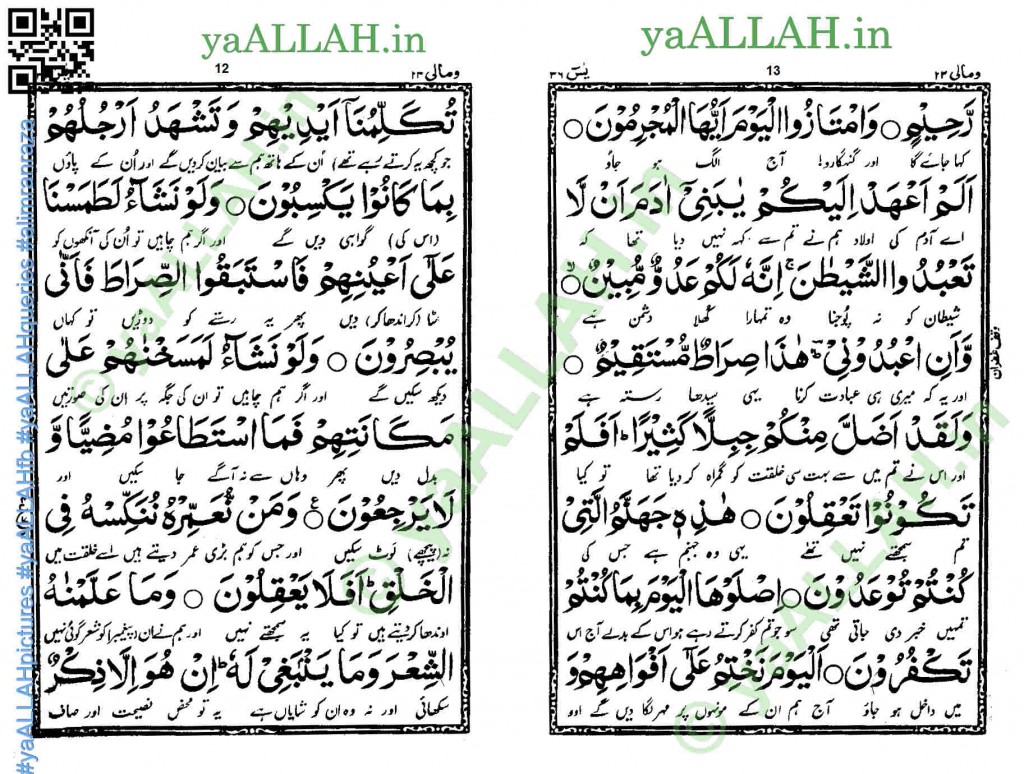 yaALLAH.in
ومالی ۲۳
13
یٰسٓ ۳۶
رَّحِیْمٍ ○ وَامْتَازُوا الْیَوْمَ اَیُّهَا الْمُجْرِمُوْنَ ○
کہا جائے گا اور گنہگارو! آج الگ ہو جاؤ
اَلَمْ اَعْهَدْ اِلَیْکُمْ یٰبَنِیْۤ اٰدَمَ اَنْ لَّا
اے آدم کی اولاد ہم نے تم سے کہہ نہیں دیا تھا کہ
تَعْبُدُوا الشَّیْطٰنَ ۚ اِنَّهٗ لَکُمْ عَدُوٌّ مُّبِیْنٌ ○ۙ
شیطان کو نہ پوجنا وہ تمہارا کھلا دشمن ہے
وَّاَنِ اعْبُدُوْنِیْ ؔؕ هٰذَا صِرَاطٌ مُّسْتَقِیْمٌ ○
اور یہ کہ میری ہی عبادت کرنا یہی سیدھا رستہ ہے
وَلَقَدْ اَضَلَّ مِنْکُمْ جِبِلًّا کَثِیْرًا ؕ اَفَلَمْ
اور اس نے تم میں سے بہت سی خلقت کو گمراہ کر دیا تھا تو کیا
تَکُوْنُوْا تَعْقِلُوْنَ ○ هٰذِهٖ جَهَنَّمُ الَّتِیْ
تم سمجھتے نہیں تھے یہی وہ جہنم ہے جس کی
کُنْتُمْ تُوْعَدُوْنَ ○ اِصْلَوْهَا الْیَوْمَ بِمَا کُنْتُمْ
تمہیں خبر دی جاتی تھی سو جو تم کفر کرتے رہے ہو اس کے بدلے آج اس
تَکْفُرُوْنَ ○ اَلْیَوْمَ نَخْتِمُ عَلٰۤی اَفْوَاهِهِمْ وَ
میں داخل ہو جاؤ آج ہم ان کے مونہوں پر مہر لگا دیں گے اور
yaALLAH.in
ومالی ۲۳
12
تُکَلِّمُنَاۤ اَیْدِیْهِمْ وَتَشْهَدُ اَرْجُلُهُمْ
جو کچھ یہ کرتے رہے تھے) اُن کے ہاتھ ہم سے بیان کریں گے اور اُن کے پاؤں
بِمَا کَانُوْا یَکْسِبُوْنَ ○ وَلَوْ نَشَآءُ لَطَمَسْنَا
(اس کی) گواہی دیں گے اور اگر ہم چاہیں تو اُن کی آنکھوں کو
عَلٰۤی اَعْیُنِهِمْ فَاسْتَبَقُوا الصِّرَاطَ فَاَنّٰی
مٹا (کر اندھا کر) دیں پھر یہ رستے کو دوڑیں تو کہاں
یُبْصِرُوْنَ ○ وَلَوْ نَشَآءُ لَمَسَخْنٰهُمْ عَلٰی
دیکھ سکیں گے اور اگر ہم چاہیں تو ان کی جگہ پر ان کی صورتیں
مَکَانَتِهِمْ فَمَا اسْتَطَاعُوْا مُضِیًّا وَّ
بدل دیں پھر وہاں سے نہ آگے جا سکیں اور
لَا یَرْجِعُوْنَ ○ وَمَنْ نُّعَمِّرْهُ نُنَکِّسْهُ فِی
نہ (پیچھے) لوٹ سکیں اور جس کو ہم بڑی عمر دیتے ہیں اسے خلقت میں
الْخَلْقِ ؕ اَفَلَا یَعْقِلُوْنَ ○ وَمَا عَلَّمْنٰهُ
اوندھا کر دیتے ہیں تو کیا یہ سمجھتے نہیں اور ہم نے ان (پیغمبر) کو شعر گوئی نہیں
الشِّعْرَ وَمَا یَنْۢبَغِیْ لَهٗ ؕ اِنْ هُوَ اِلَّا ذِکْرٌ
سکھائی اور نہ وہ ان کو شایاں ہے یہ تو محض نصیحت اور صاف
#yaALLAHpictures #yaALLAHfb #yaALLAHqueries #alimranraza
© yaALLAH.in
© yaALLAH.in
© yaALLAH.in